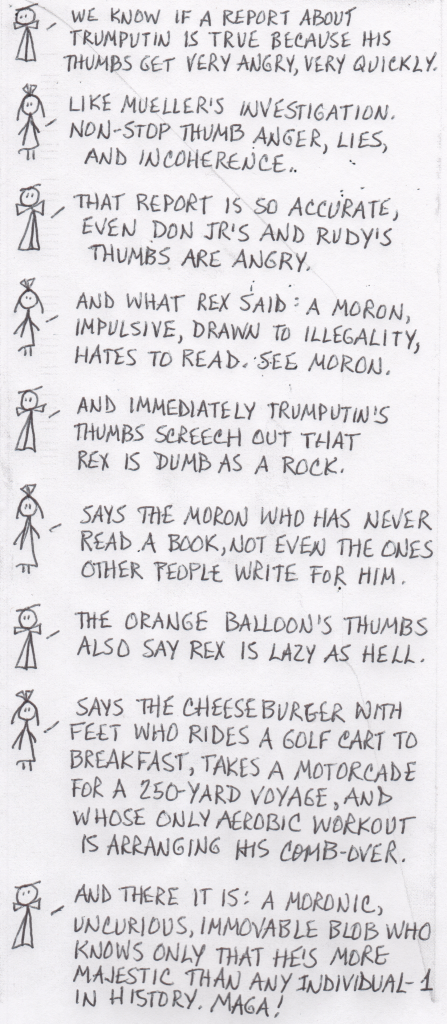 WE KNOW IF A REPORT ABOUT
TRUMPUTIN IS TRUE BECAUSE HIS
THUMBS GET VERY ANGRY, VERY QUICKLY.
LIKE MUELLER'S INVESTIGATION.
NON-STOP THUMB ANGER, LIES,
AND INCOHERENCE..
THAT REPORT IS SO ACCURATE,
EVEN DON JR'S AND RUDY'S
THUMBS ARE ANGRY.
AND WHAT REX SAID: A MORON,
IMPULSIVE, DRAWN TO ILLEGALITY,
HATES TO READ. SEE MORON.
AND IMMEDIATELY TRUMPUTIN'S
THUMBS SCREECH OUT THAT
REX IS DUMB AS A ROCK.
SAYS THE MORON WHO HAS NEVER
READ A BOOK, NOT EVEN THE ONES
OTHER PEOPLE WRITE FOR HIM.
THE ORANGE BALLOON'S THUMBS
ALSO SAY REX IS LAZY AS HELL.
SAYS THE CHEESEBURGER WITH
FEET WHO RIDES A GOLF CART TO
BREAKFAST, TAKES A MOTORCADE
FOR A 250-YARD VOYAGE, AND
WHOSE ONLY AEROBIC WORKOUT
IS ARRANGING HIS COMB-OVER.
AND THERE IT IS: A MORONIC,
UNCURIOUS, IMMOVABLE BLOB WHO
KNOWS ONLY THAT HE'S MORE
MAJESTIC THAN ANY INDIVIDUAL-1
IN HISTORY. MAGA!